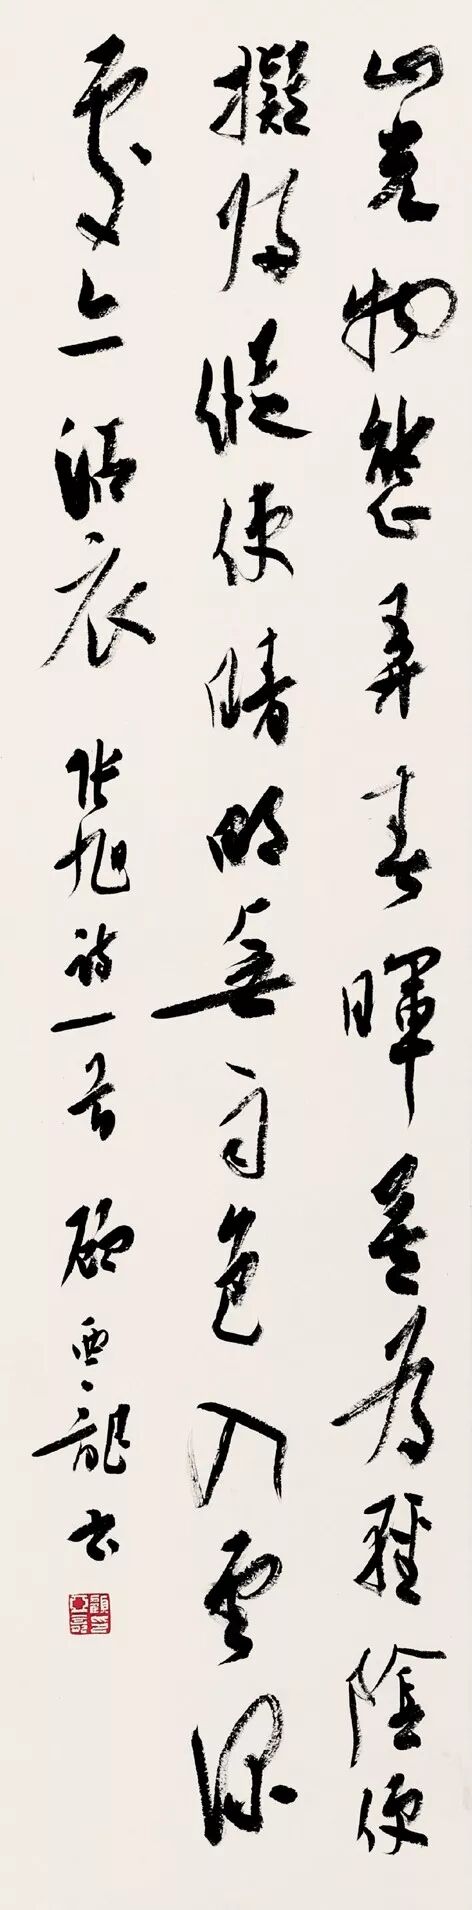 山光物態弄春暉莫為輕陰便
擬歸縱使晴明無雨色入雲深
處亦沾衣 張旭詩一首 顧亞龍書